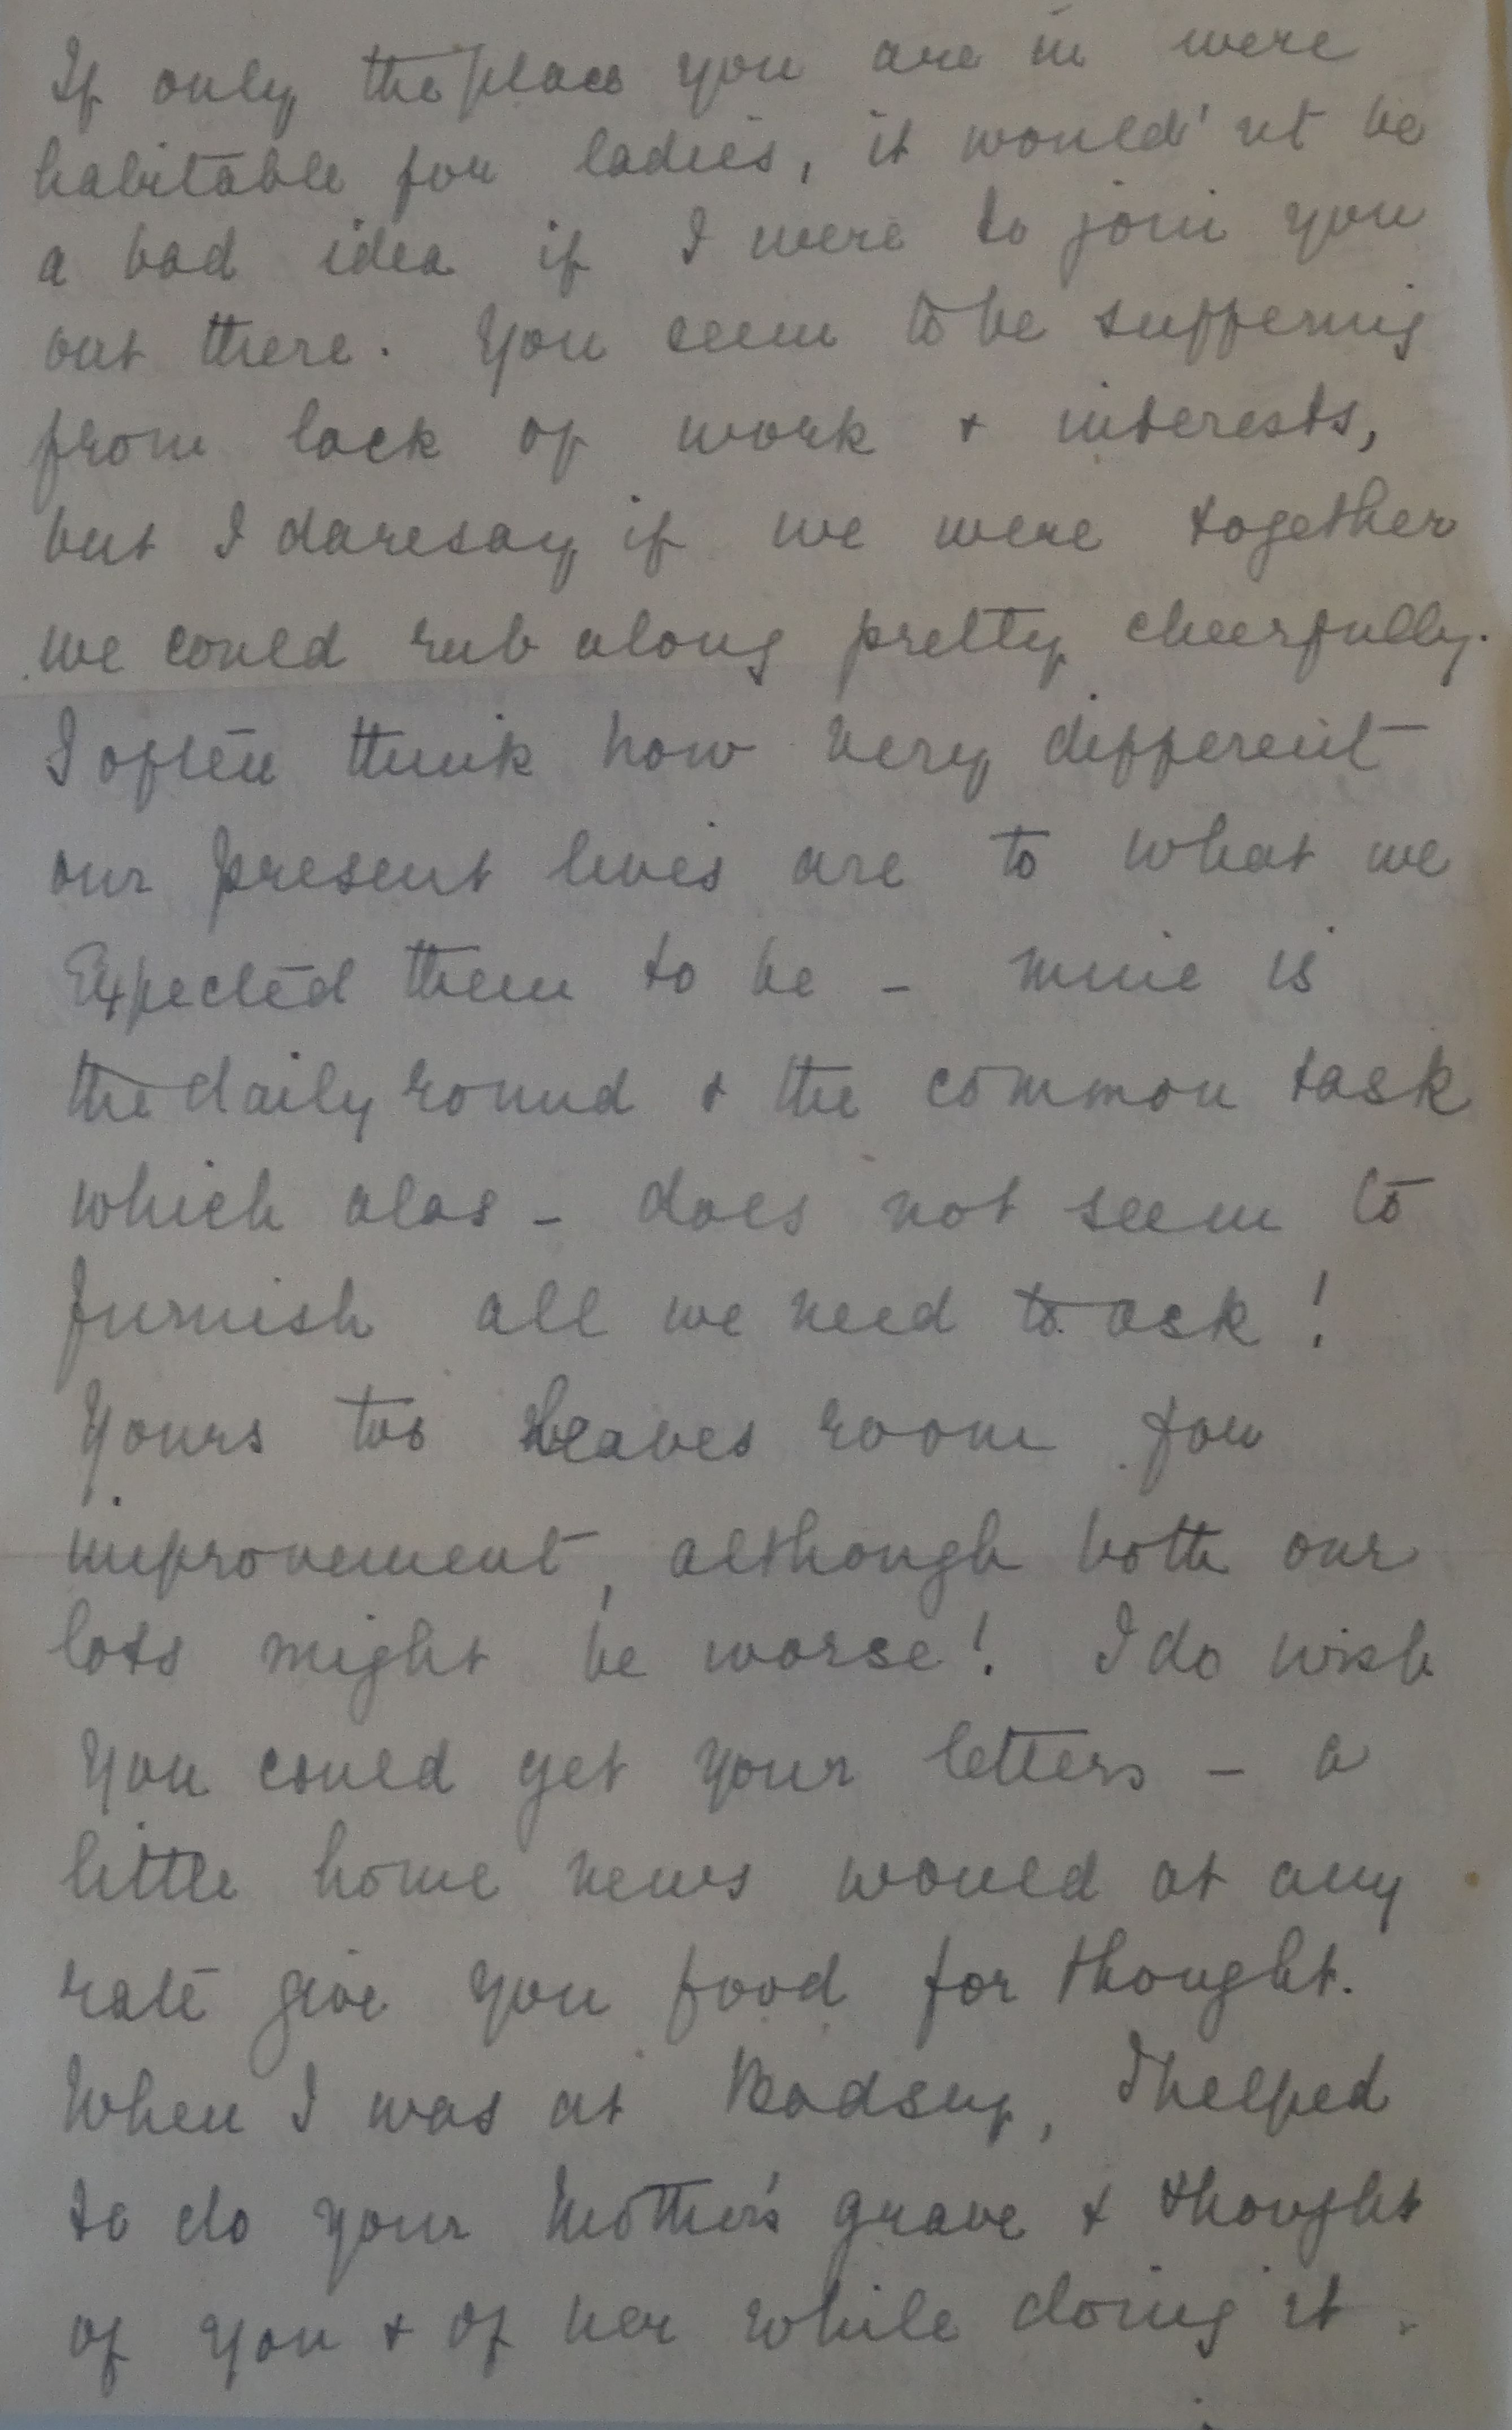 If only the place you are in were
habitable for ladies, it would'nt be
a bad idea if I were to join you
out there. You seem to be suffering
from lack of work + interests,
but I daresay if we were together
we could rub along pretty cheerfully.
I often think how very different
our present lives are to what we
Expected them to be - mine is
the daily round + the common task
which alas - does not seem to
furnish all we need to ask!
Yours too leaves room for
improvement, although both our
lots might be worse! I do wish
you could get your letters - a
little home news would at any
rate give you food for thought.
When I was at Badsey, I helped
to do your Mother's grave + thought
of you + of her while doing it.